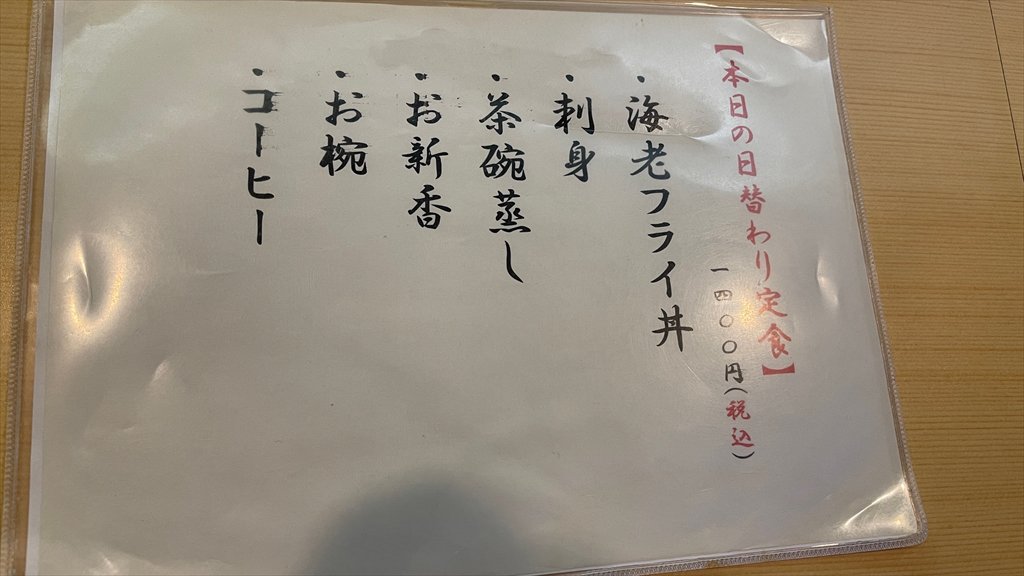 【本日の日替わり定食】
一四〇〇円(税込)
・海老フライ丼
・刺身
・茶碗蒸し
・お新香
・お椀
・コーヒー